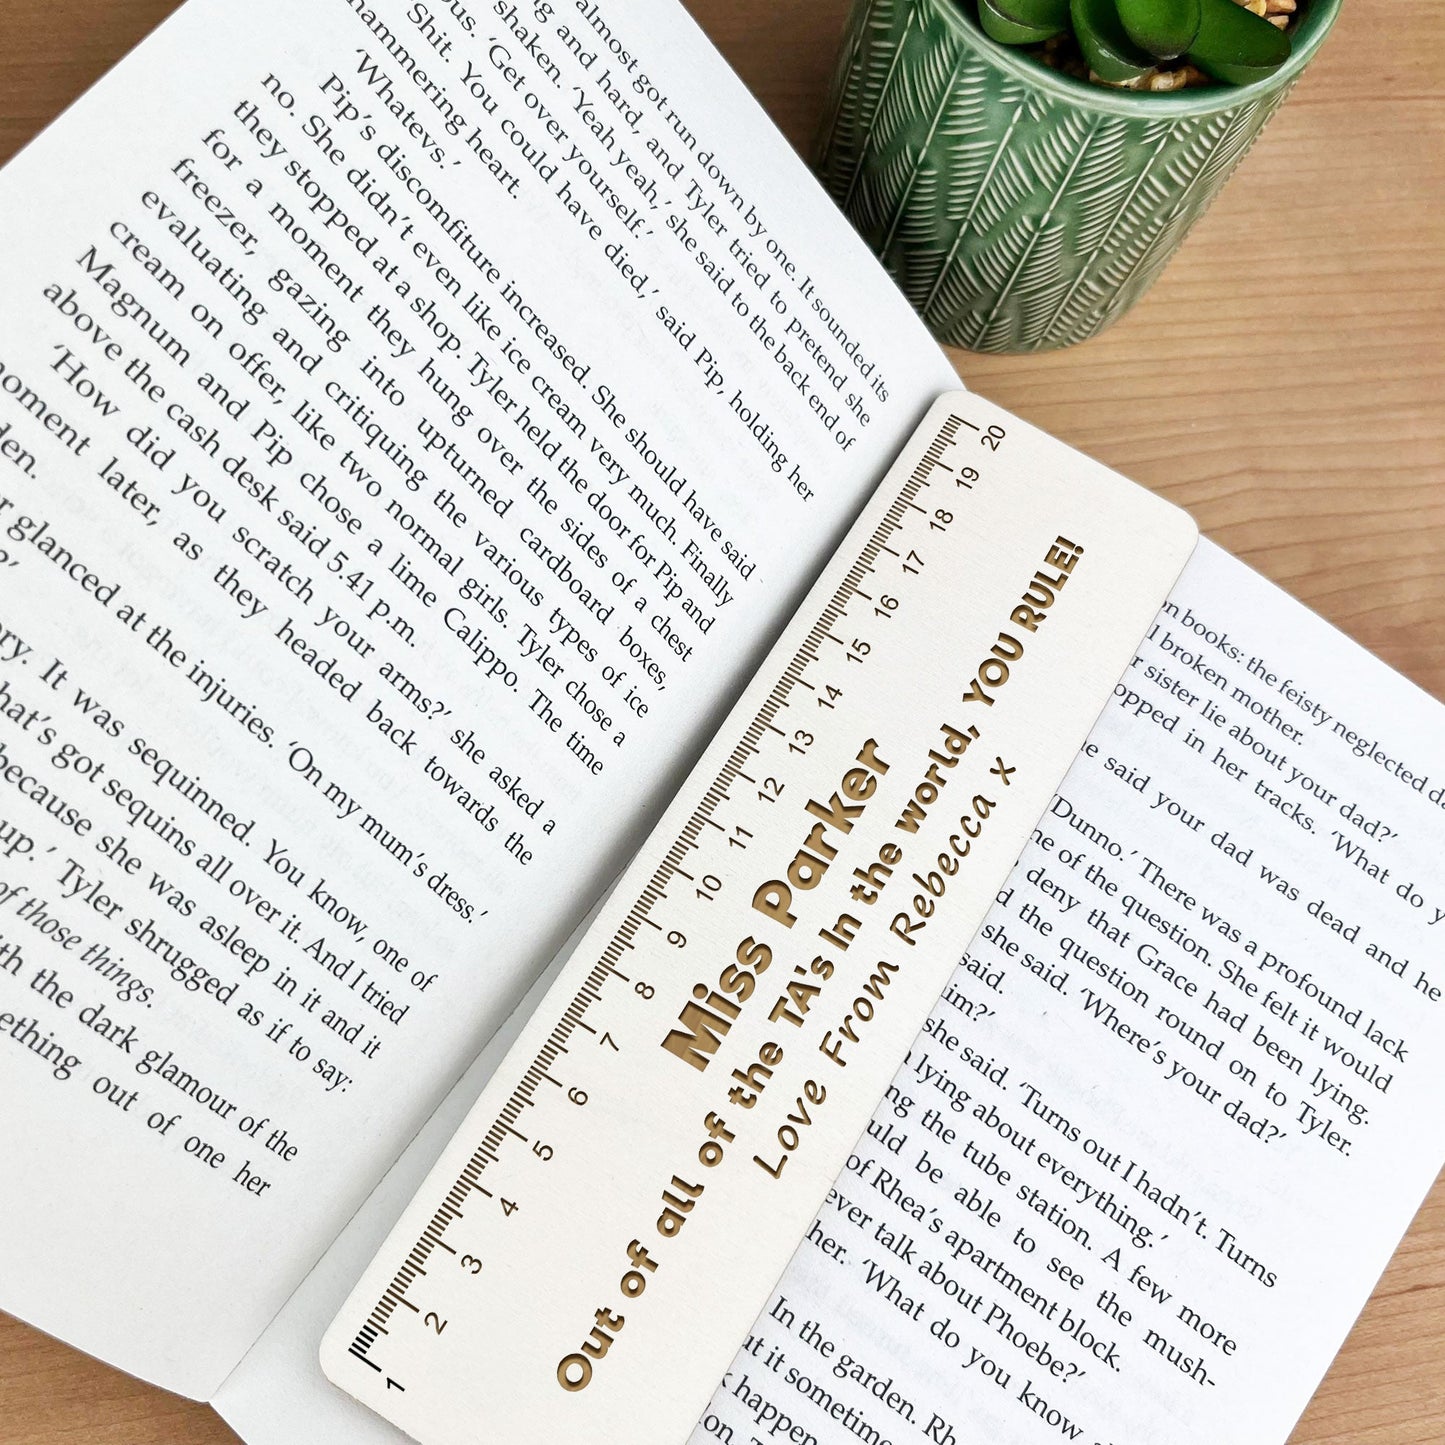 almost got run down by one. It sounded its
and hard, and Tyler tried to pretend she
shaken. 'Yeah yeah,' she said to the back end of
'Get over yourself.'
Shit. You could have died,' said Pip, holding her
hammering heart.
'Whatevs.'
Pip's discomfiture increased. She should have said
no. She didn't even like ice cream very much. Finally
they stopped at a shop. Tyler held the door for Pip and
for a moment they hung over the sides of a chest
freezer, gazing into upturned cardboard boxes,
evaluating and critiquing the various types of ice
cream on offer, like two normal girls. Tyler chose a
Magnum and Pip chose a lime Calippo. The time
above the cash desk said 5.41 p.m.
'How did you scratch your arms?' she asked a
moment later, as they headed back towards the
glanced at the injuries. 'On my mum's dress.'
It was sequinned. You know, one of
that's got sequins all over it. And I tried
because she was asleep in it and it
up.' Tyler shrugged as if to say:
of those things.
the dark glamour of the
out of one her
1 2 3 4 5 6 7 8 9 10 11 12 13 14 15 16 17 18 19 20
Miss Parker
Out of all of the TA's In the world, YOU RULE!
Love From Rebecca x
books: the feisty neglected
broken mother.
sister lie about your dad?'
in her tracks. 'What do
said your dad was dead and he
'Dunno.' There was a profound lack
of the question. She felt it would
deny that Grace had been lying.
the question round on to Tyler.
she said. 'Where's your dad?'
said.
she said. 'Turns out I hadn't. Turns
lying about everything.'
the tube station. A few more
be able to see the mush-
of Rhea's apartment block.
talk about Phoebe?'
her. 'What do you know
In the garden.
it